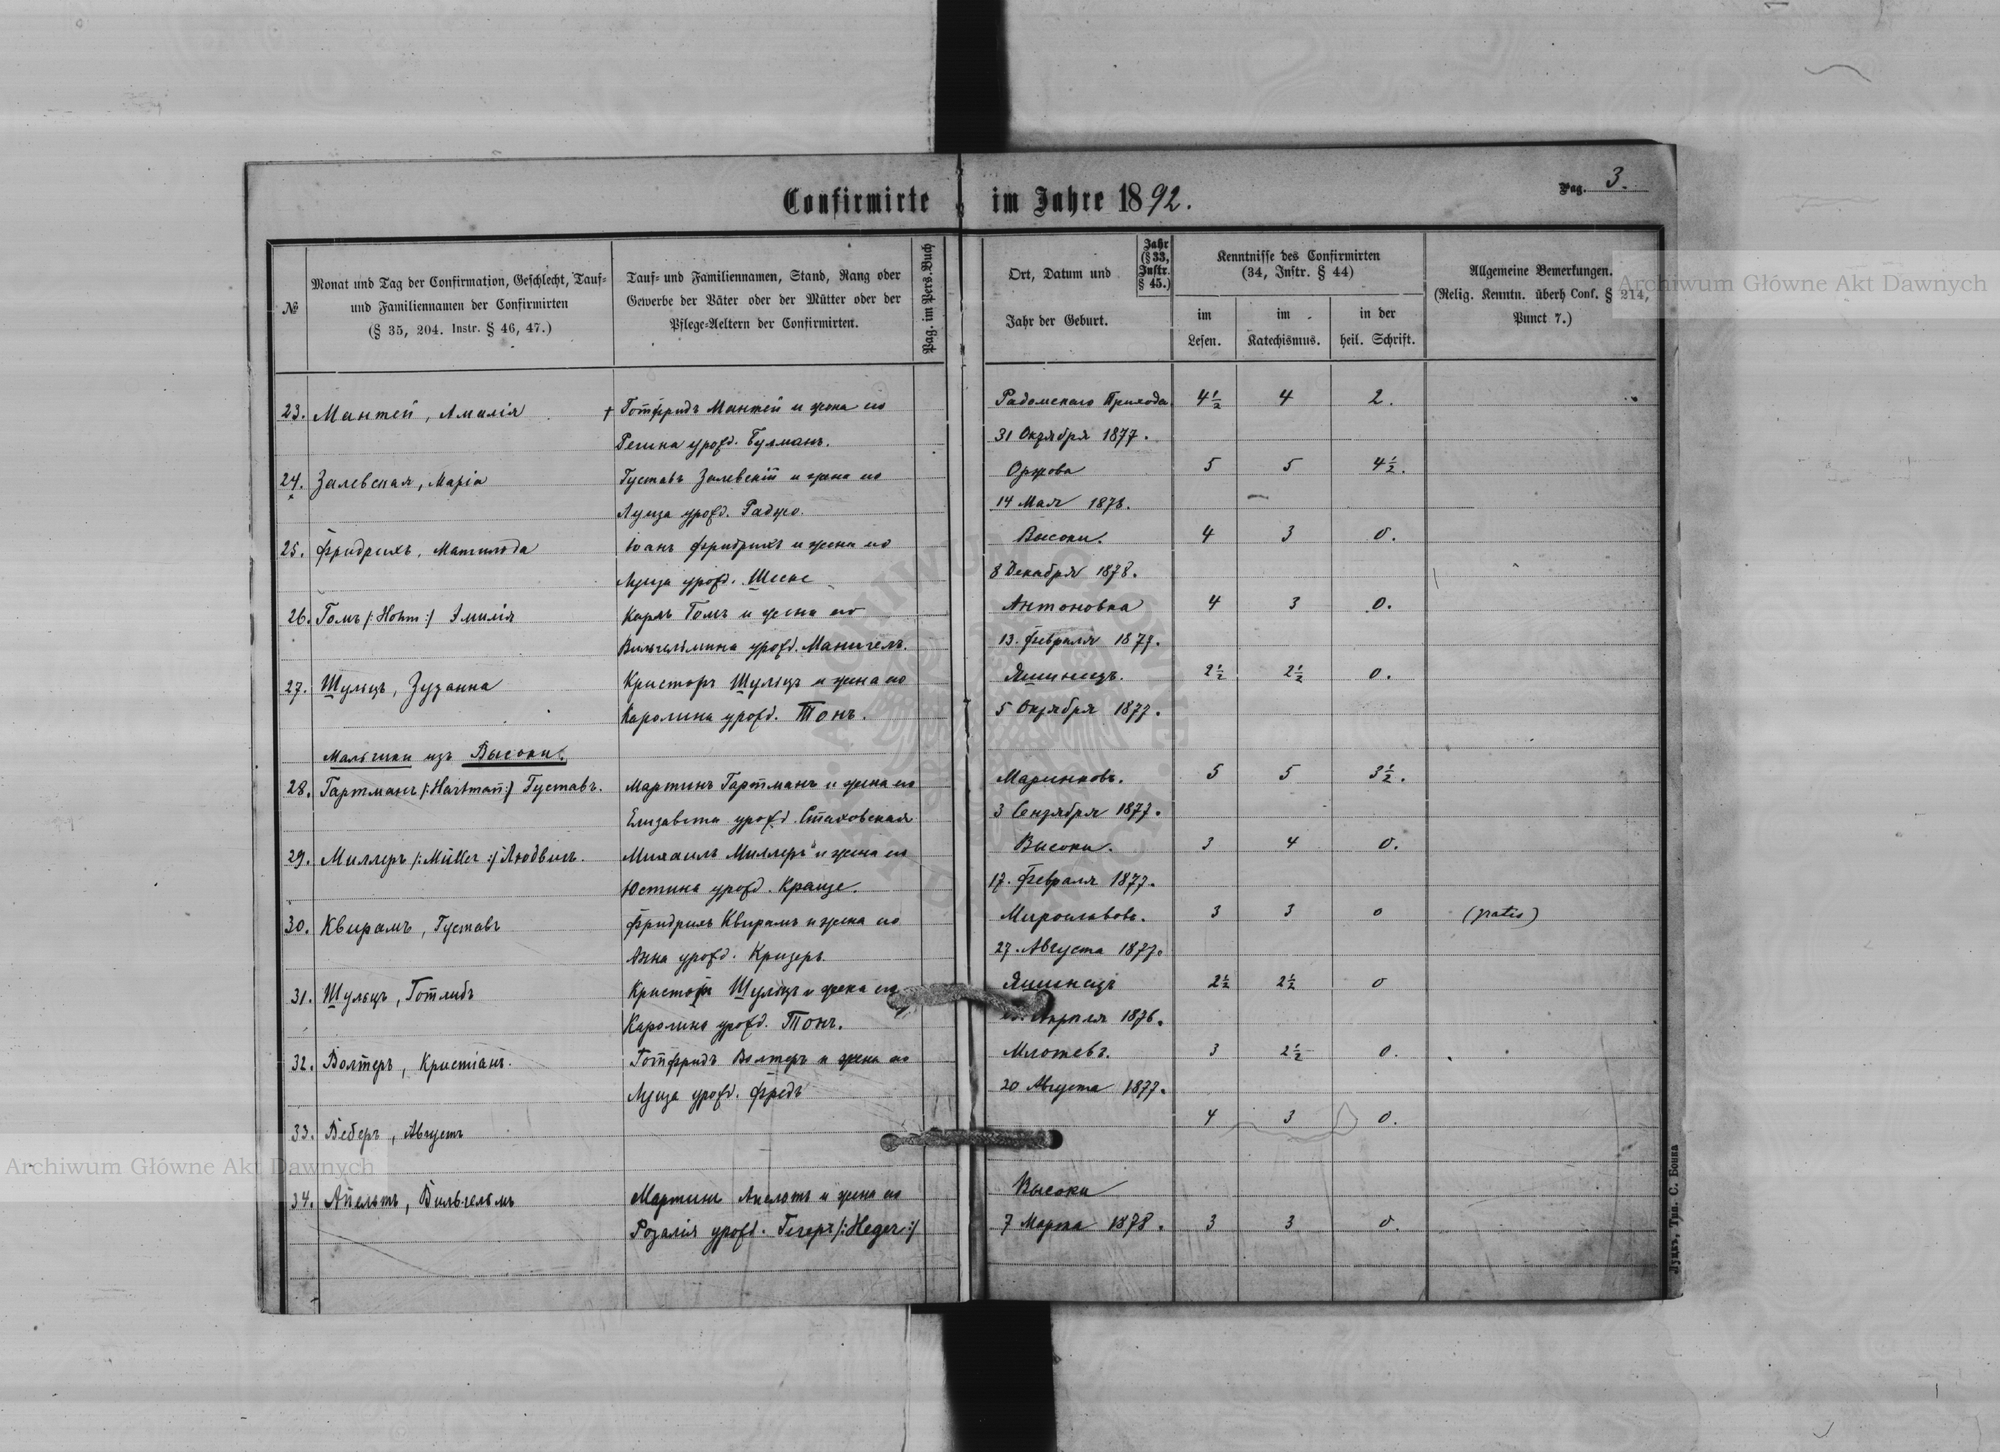 Confirmirte im Jahre 1892.
Pag. 3.
№
Monat und Tag der Confirmation, Geschlecht, Tauf-
und Familiennamen der Confirmirten
(§ 35, 204. Instr. § 46, 47.)
Tauf- und Familiennamen, Stand, Rang oder
Gewerbe der Väter oder der Mütter oder der
Pflege-Aeltern der Confirmirten.
Pag. im Pers.Buch
Ort, Datum und
Jahr der Geburt.
Jahr
(§ 33,
Instr.
§ 45.)
Kenntnisse des Confirmirten
(34, Instr. § 44)
im
Lesen.
im
Katechismus.
in der
heil. Schrift.
Allgemeine Bemerkungen.
(Relig. Kenntn. überh Conf. § 214,
Punct 7.)
23. Мантей, Амалія † Готфридъ Мантей и жена его Радомскаго Прихода 4½ 4 2.
Регина урожд. Булманъ. 31 Октября 1877.
24. Залевская, Марія Густавъ Залевскій и жена его Оржова 5 5 4½.
Луиза урожд. 14 Мая 1876.
25. Фридрихъ, Матильда Іоанъ Фридрихъ и жена его Высоки. 4 3 0.
Луиза урожд. 8 Декабря 1878.
26. Гомъ /:Hohm:/ Эмилія Карлъ Гомъ и жена его Антоновка 4 3 0.
Вильгельмина урожд. 13. Февраля 1877.
27. Шульцъ, Зузанна Кристофъ Шульцъ и жена его Яшиницъ. 2½ 2½ 0.
Каролина урожд. Тонъ. 5 Октября 1877.
Мальчики изъ Высоки.
28. Гартманъ /:Hartmañ:/ Густавъ. Мартинъ Гартманъ и жена его Маринковъ. 5 5 3½.
Елизавета урожд. Стаховская 3 Сентября 1877.
29. Миллеръ /:Müller:/ Людвигъ. Михаилъ Миллеръ и жена его Высоки. 3 4 0.
Юстина урожд. Краузе. 17. Февраля 1877.
30. Квирамъ, Густавъ Фридрихъ Квирамъ и жена его Мирославовъ. 3 3 0 (gratis)
Анна урожд. Кризеръ. 27. Августа 1877.
31. Шульцъ, Готлибъ Кристофъ Шульцъ и жена его Яшиницъ 2½ 2½ 0
Каролина урожд. Тонъ. Апреля 1876.
32. Волтеръ, Кристіанъ. Готфридъ Волтеръ и жена его 3 2½ 0.
Луиза урожд. 20 Августа 1877.
33. Веберъ, Августъ 4 3 0.
34. Апельтъ, Вильгельмъ Мартинъ Апельтъ и жена его Высоки
Розалія урожд. Гегеръ /:Heger:/ 7 Марта 1878. 3 3 0.
Луцкъ, Тип. С. Бонка
Archiwum Główne Akt Dawnych
Archiwum Główne Akt Dawnych